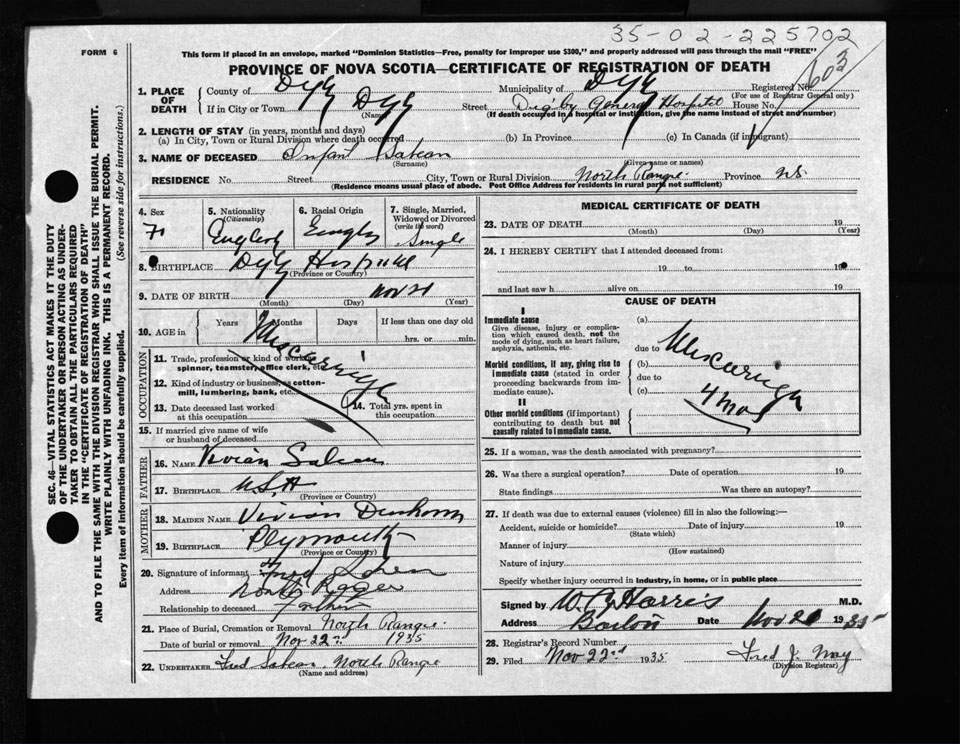 35-02-225702
FORM 6
This form if placed in an envelope, marked "Dominion Statistics—Free, penalty for improper use $300," and properly addressed will pass through the mail "FREE"
PROVINCE OF NOVA SCOTIA—CERTIFICATE OF REGISTRATION OF DEATH
1. PLACE OF DEATH
County of
Municipality of
Registered No.
603
(For use of Registrar General only)
If in City or Town
(Name)
Street Digby General Hospital House No.
(If death occurred in a hospital or institution, give the name instead of street and number)
2. LENGTH OF STAY (in years, months and days)
(a) In City, Town or Rural Division where death occurred (b) In Province (c) In Canada (if immigrant)
3. NAME OF DECEASED Infant
(Surname) (Given name or names)
RESIDENCE No. Street City, Town or Rural Division North Range Province N.S.
(Residence means usual place of abode. Post Office Address for residents in rural parts not sufficient)
4. Sex
5. Nationality (Citizenship)
6. Racial Origin
7. Single, Married, Widowed or Divorced (write the word)
Single
8. BIRTHPLACE
(Province or Country)
9. DATE OF BIRTH Nov 21
(Month) (Day) (Year)
10. AGE in Years Months Days If less than one day old
hrs. or min.
Miscarriage
OCCUPATION
11. Trade, profession or kind of work as spinner, teamster, office clerk, etc.
12. Kind of industry or business, as cotton-mill, lumbering, bank, etc.
13. Date deceased last worked at this occupation
14. Total yrs. spent in this occupation
15. If married give name of wife or husband of deceased
FATHER
16. NAME Vivian
17. BIRTHPLACE U.S.A
(Province or Country)
MOTHER
18. MAIDEN NAME Vivian
19. BIRTHPLACE Plymouth
(Province or Country)
20. Signature of informant Fred
Address North
Relationship to deceased Father
21. Place of Burial, Cremation or Removal North Range
Date of burial or removal Nov 22nd 1935
22. UNDERTAKER Fred North Range
(Name and address)
MEDICAL CERTIFICATE OF DEATH
23. DATE OF DEATH 19
(Month) (Day) (Year)
24. I HEREBY CERTIFY that I attended deceased from:
19 to 19
and last saw h alive on 19
CAUSE OF DEATH
I
Immediate cause
Give disease, injury or complication which caused death, not the mode of dying, such as heart failure, asphyxia, asthenia, etc.
(a)
due to
Morbid conditions, if any, giving rise to immediate cause (stated in order proceeding backwards from immediate cause).
(b)
due to
(c)
Miscarriage
4 mos
II
Other morbid conditions (if important) contributing to death but not causally related to immediate cause.
25. If a woman, was the death associated with pregnancy?
26. Was there a surgical operation? Date of operation 19
State findings Was there an autopsy?
27. If death was due to external causes (violence) fill in also the following:—
Accident, suicide or homicide? Date of injury 19
(State which)
Manner of injury
(How sustained)
Nature of injury
Specify whether injury occurred in industry, in home, or in public place
Signed by Harris M.D.
Address Barton Date Nov 21 1935
28. Registrar's Record Number
29. Filed Nov 22nd 1935 Fred J.
(Division Registrar)
SEC. 46—VITAL STATISTICS ACT MAKES IT THE DUTY
OF THE UNDERTAKER OR PERSON ACTING AS UNDER-
TAKER TO OBTAIN ALL THE PARTICULARS REQUIRED
IN THE "CERTIFICATE OF REGISTRATION OF DEATH"
AND TO FILE THE SAME WITH THE DIVISION REGISTRAR WHO SHALL ISSUE THE BURIAL PERMIT.
WRITE PLAINLY WITH UNFADING INK. THIS IS A PERMANENT RECORD.
Every item of information should be carefully supplied. (See reverse side for instructions.)